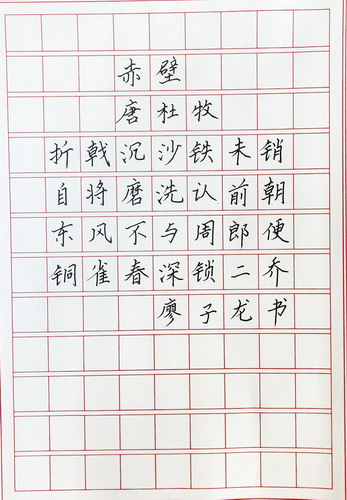 赤壁
唐杜牧
折戟沉沙铁未销
自将磨洗认前朝
东风不与周郎便
铜雀春深锁二乔
廖子龙书